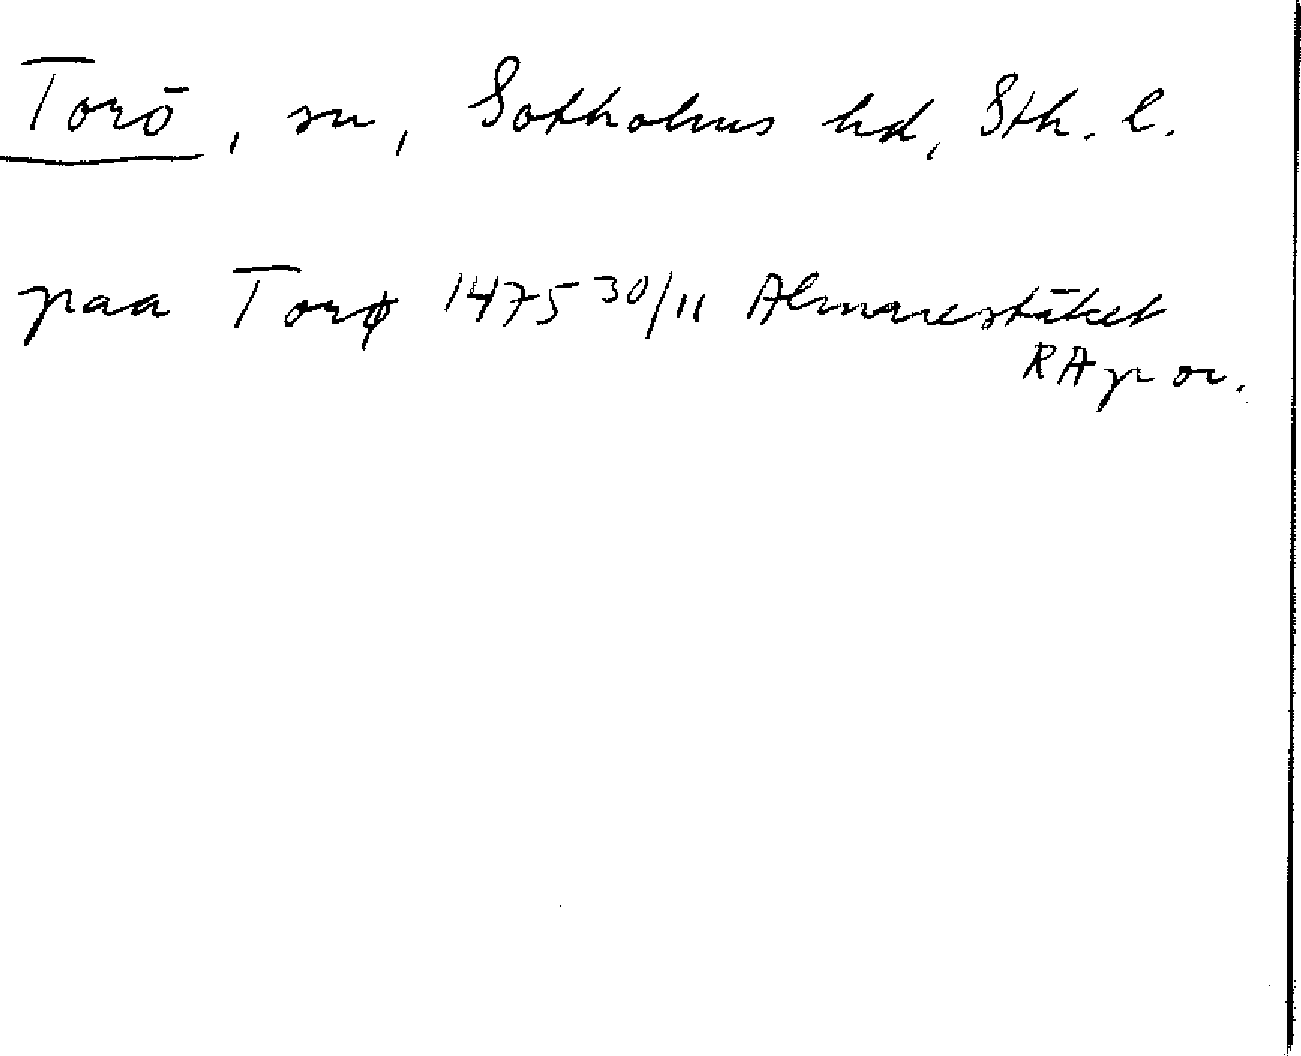 Torö, sn, Sotholms hd, Sth. l.
paa Torø 1475 30/11 Almarestäket
RA por.